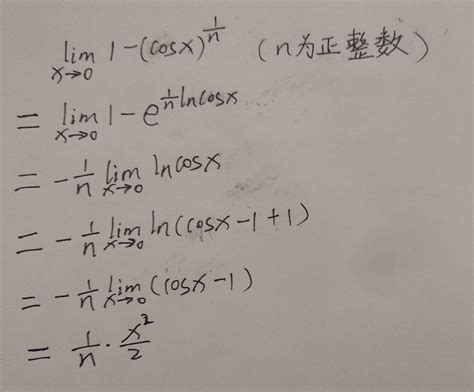 lim x→0 1-(cosx)^(1/n) (n为正整数)
= lim x→0 1-e^(1/n lncosx)
= -1/n lim x→0 lncosx
= -1/n lim x→0 ln(cosx-1+1)
= -1/n lim x→0 (cosx-1)
= 1/n · x²/2